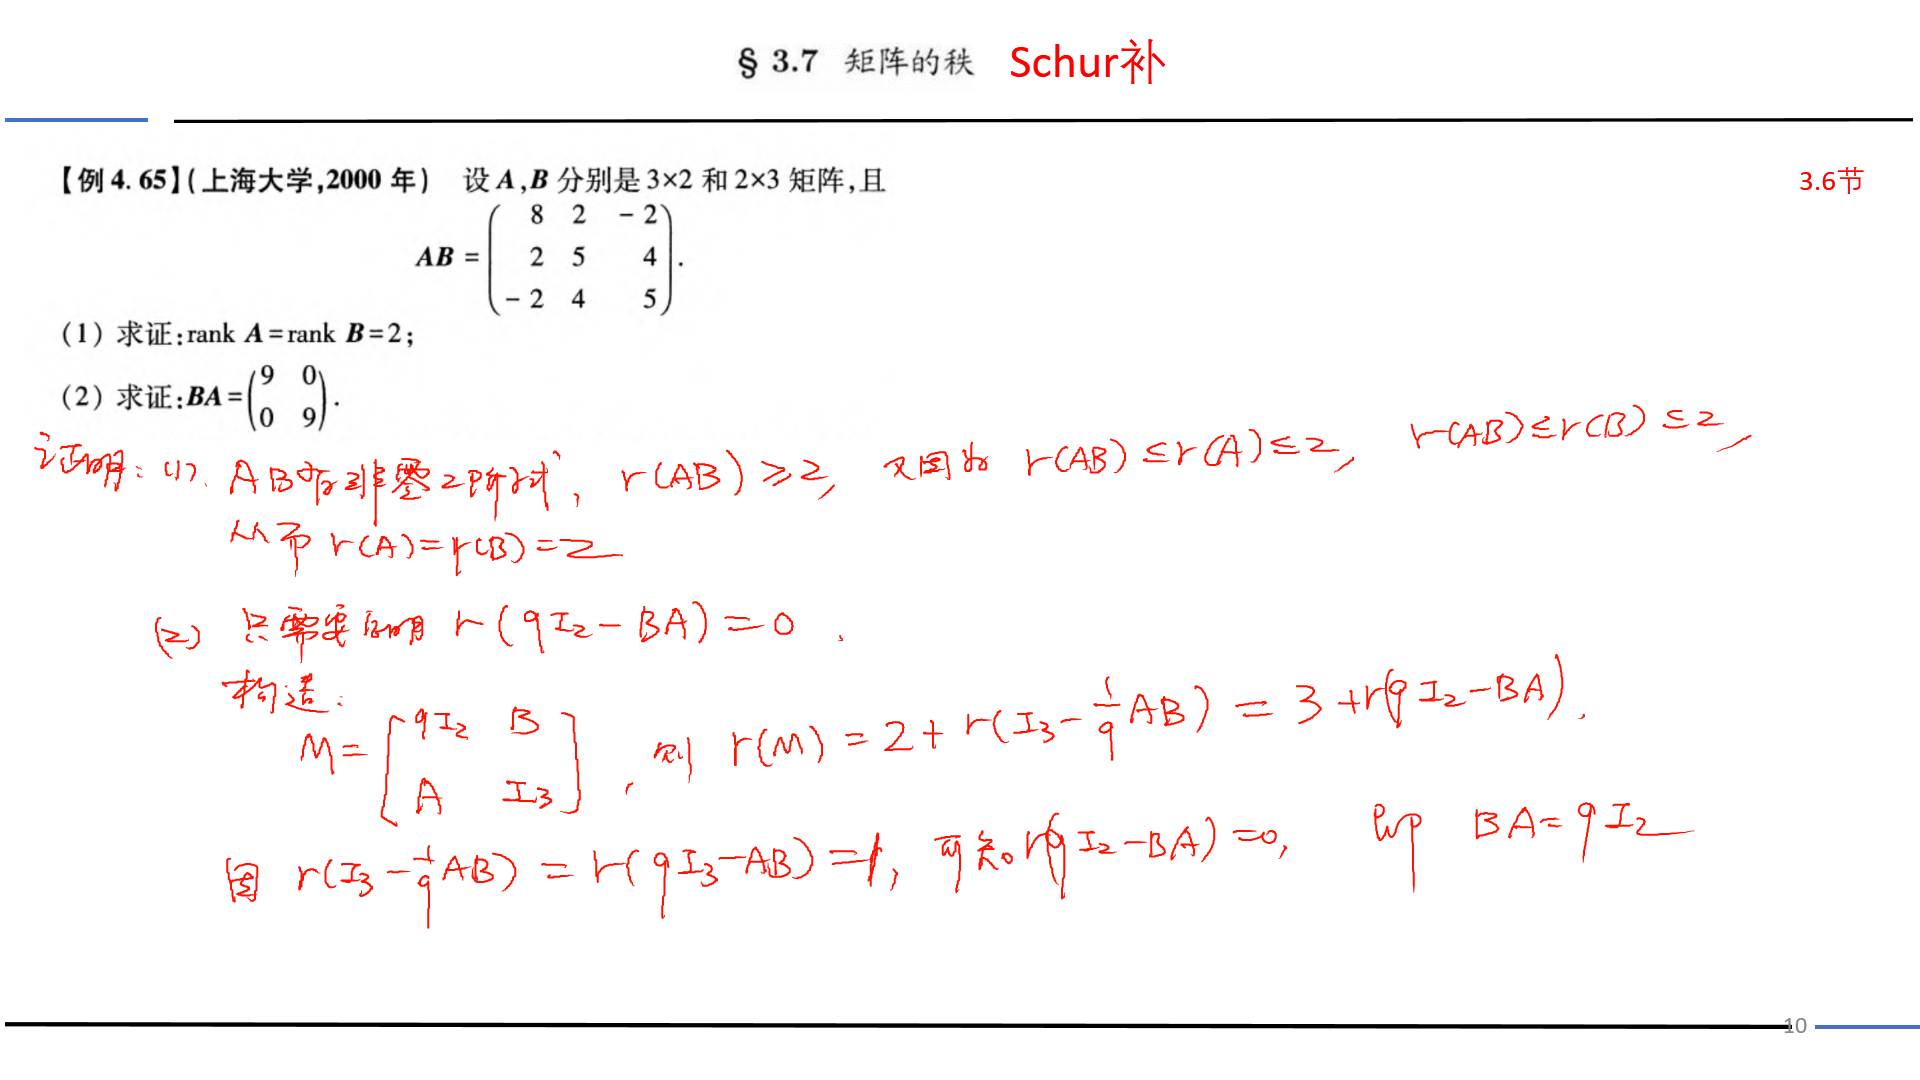 § 3.7 矩阵的秩 Schur补
【例4.65】(上海大学,2000 年) 设 A,B 分别是 3×2 和 2×3 矩阵,且
3.6节
AB = ( 8 2 -2
2 5 4
-2 4 5 ).
(1) 求证:rank A=rank B=2;
(2) 求证:BA= ( 9 0
0 9 ).
证明: (1). AB有非零2阶子式, r(AB)≥2, 又因为 r(AB)≤r(A)≤2, r(AB)≤r(B)≤2,
从而 r(A)=r(B)=2
(2) 只需要证明 r(9I₂-BA)=0.
构造:
M= [ 9I₂ B
A I₃ ], 则 r(M)=2+r(I₃-1/9AB)=3+r(9I₂-BA).
因 r(I₃-1/9AB)=r(9I₃-AB)=1, 可知 r(9I₂-BA)=0, 即 BA=9I₂
10